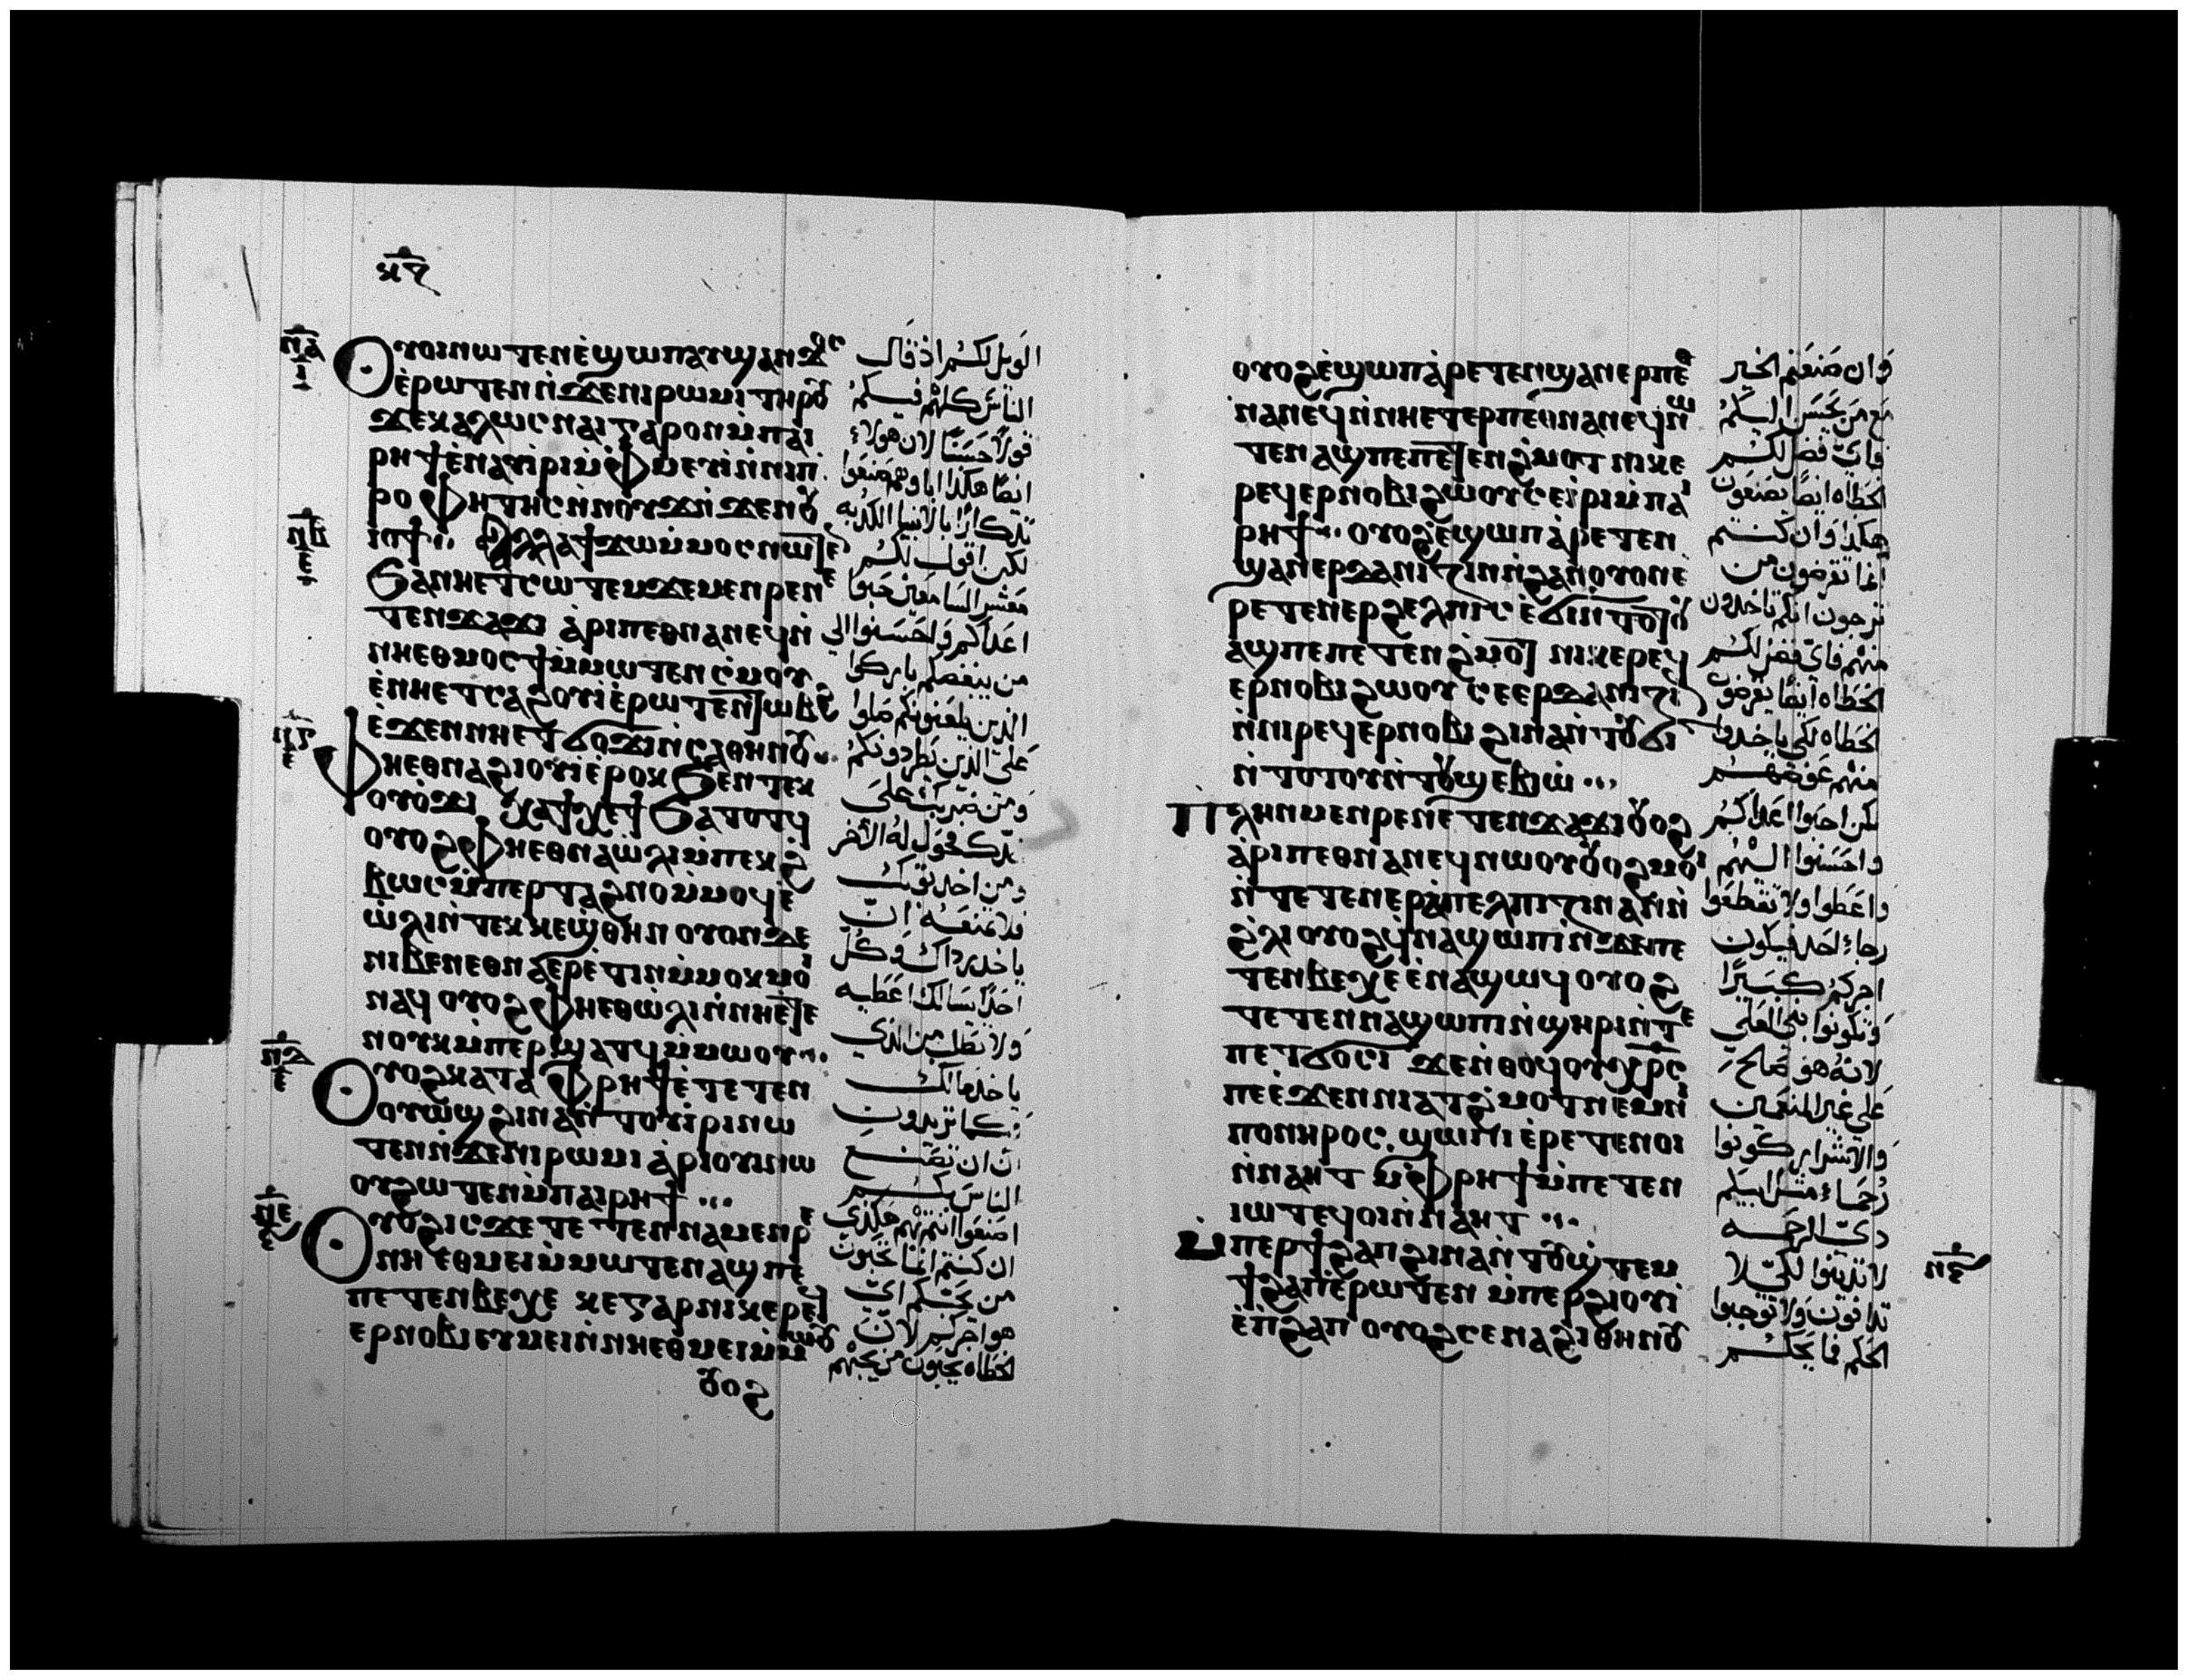 ⲟⲩⲟⲓ ⲛⲱⲧⲉⲛ ⲉ̀ϣⲱⲡ ⲁⲩϣⲁⲛϫⲟⲥ
ⲉ̀ⲣⲱⲧⲉⲛ ⲛ̀ϫⲉⲛⲓⲣⲱⲙⲓ ⲧⲏⲣⲟⲩ
ϫⲉⲕⲁⲗⲱⲥ ⲛⲁⲓ ⲅⲁⲣ ⲟⲛ ⲙ̀ⲡⲁⲓ
ⲣⲏϯ ⲉ̀ⲛⲁⲩⲓⲣⲓ ⲙ̀ⲙⲱⲟⲩ
ⲓⲟϯ ⲁⲗⲗⲁ ϯϫⲱ ⲙ̀ⲙⲟⲥ ⲛⲱⲧⲉ
ϧⲁ ⲛⲏⲉⲧⲥⲱⲧⲉⲙ ϫⲉⲙⲉⲛⲣⲉⲛⲉ
ⲧⲉⲛϫⲁϫⲓ ⲁ̀ⲣⲓⲡⲉⲑⲛⲁⲛⲉϥ ⲛ̀
ⲛⲏⲉⲑⲙⲟⲥϯ ⲙ̀ⲙⲱⲧⲉⲛ ⲥ̀ⲙⲟⲩ
ⲉ̀ⲛⲏⲉⲧⲥⲁϩⲟⲩⲓ ⲉ̀ⲣⲱⲧⲉⲛ ⲧⲱⲃϩ
ⲉ̀ϫⲉⲛ ⲛⲏⲉⲧϭⲟϫⲓ ⲛ̀ⲥⲁⲑⲏⲛⲟⲩ
ⲫⲏⲉⲑⲛⲁϩⲓⲟⲩⲓ ⲉ̀ⲣⲟⲕ ϧⲉⲛ ⲧⲉⲕ
ⲟⲩⲟ̀ϫⲓ ⲭⲁϯⲭⲉϯ ϧⲁⲧⲟⲧϥ
ⲟⲩⲟϩ ⲫⲏⲉⲑⲛⲁⲱ̀ⲗⲓ ⲙ̀ⲡⲉⲕϩ
ⲃⲱⲥ ⲙ̀ⲡⲉⲣⲧⲁϩⲛⲟ ⲙ̀ⲙⲟϥ ⲉ̀
ⲱ̀ⲗⲓ ⲛ̀ⲧⲉⲕⲕⲉϣ̀ⲑⲏⲛ ⲟⲩⲟⲛ ⲇⲉ
ⲛⲓⲃⲉⲛ ⲉⲑⲛⲁⲉⲣⲉ̀ⲧⲓⲛ ⲙ̀ⲙⲟⲕ ⲙⲟⲓ
ⲛⲁϥ ⲟⲩⲟϩ ⲫⲏⲉⲑⲱ̀ⲗⲓ ⲛ̀ⲛⲏⲉⲧⲉ
ⲛⲟⲩⲕ ⲙ̀ⲡⲉⲣϣⲁⲧϥ ⲙ̀ⲙⲱⲟⲩ
ⲟⲩⲟϩ ⲕⲁⲧⲁ ⲫⲣⲏϯ ⲉ̀ⲧⲉⲧⲉⲛ
ⲟⲩⲱϣ ϩⲓⲛⲁ ⲛ̀ⲧⲟⲩⲓⲣⲓ ⲛⲱ
ⲧⲉⲛ ⲛ̀ϫⲉⲛⲓⲣⲱⲙⲓ ⲁ̀ⲣⲓⲟⲩⲓ ⲛⲱ
ⲟⲩ ϩⲱⲧⲉⲛ ⲙ̀ⲡⲁⲓⲣⲏϯ
ⲟⲩⲟϩ ⲓⲥϫⲉ ⲧⲉⲧⲉⲛⲛⲁⲙⲉⲛⲣⲉ
ⲛⲏⲉⲑⲙⲉⲓ ⲙ̀ⲙⲱⲧⲉⲛ ⲁϣ ⲡⲉ
ⲡⲉⲧⲉⲛⲃⲉⲭⲉ ⲕⲉ ⲅⲁⲣ ⲛⲓⲕⲉⲣⲉϥ
ⲉⲣⲛⲟⲃⲓ ⲉⲩⲙⲉⲓ ⲛ̀ⲛⲏⲉⲑⲙⲉⲓ ⲙ̀ⲙⲱⲟⲩ
ⲟⲩⲟϩ
الويل لكم اذ قال
الناس كلهم فيكم
قولا حسنا لان هولاء
لكن اقول لكم
معشر السامعين حبوا
اعداكم واحسنوا الي
من يبغضكم باركوا
الذين يلعنونكم صلوا
على الذين يطردونكم
ومن ضربك على
خدك فحول له الاخر
ومن اخد توبك
فلا تمنعه ان
ياخد رداك وكل
احدا يسالك اعطيه
ولا تطلب من الذي
ياخد مالك
وكما تريدون
ان تصنع
الناس بكم
اصنعوا انتم بهم هكذي
ان كنتم انما تحبون
من يحبكم اي
هو اجركم لان
الخطاه يحبون من يحبهم
ⲟⲩⲟϩ ⲉ̀ϣⲱⲡ ⲁ̀ⲣⲉⲧⲉⲛϣⲁⲛⲉⲣⲡⲉⲑ
ⲛⲁⲛⲉϥ ⲛ̀ⲛⲏⲉⲧⲉⲣⲡⲉⲑⲛⲁⲛⲉϥ ⲛⲱ
ⲧⲉⲛ ⲁϣ ⲡⲉ ⲡⲉⲧⲉⲛϩ̀ⲙⲟⲧ ⲛⲓⲕⲉ
ⲣⲉϥⲉⲣⲛⲟⲃⲓ ϩⲱⲟⲩ ⲥⲉⲓ̀ⲣⲓ ⲙ̀ⲡⲁⲓ
ⲣⲏϯ ⲟⲩⲟϩ ⲉ̀ϣⲱⲡ ⲁ̀ⲣⲉⲧⲉⲛ
ϣⲁⲛⲉⲣⲇⲁⲛⲓⲍⲓⲛ ⲛ̀ϩⲁⲛⲟⲩⲟⲛ ⲉ
ⲣⲉⲧⲉⲛⲉⲣϩⲉⲗⲡⲓⲥ ⲉ̀ϭⲓ ⲛ̀ⲧⲟⲧⲟⲩ
ⲁϣ ⲡⲉ ⲡⲉⲧⲉⲛϩ̀ⲙⲟⲧ ⲛⲓⲕⲉⲣⲉϥ
ⲉⲣⲛⲟⲃⲓ ϩⲱⲟⲩ ⲥⲉⲉⲣⲇⲁⲛⲓⲍⲓ
ⲛ̀ⲛⲓⲣⲉϥⲉⲣⲛⲟⲃⲓ ϩⲓⲛⲁ ⲛ̀ⲧⲟⲩϭⲓ
ⲛ̀ⲧⲟⲧⲟⲩ ⲛ̀ⲧⲟⲩϣⲉⲃⲓⲱ̀
ⲡⲗⲏⲛ ⲙⲉⲛⲣⲉ ⲛⲉⲧⲉⲛϫⲁϫⲓ ⲟⲩⲟϩ
ⲁ̀ⲣⲓⲡⲉⲑⲛⲁⲛⲉϥ ⲛⲱⲟⲩ ⲟⲩⲟϩ ⲙⲟⲓ
ⲛ̀ⲧⲉⲧⲉⲛⲉⲣⲁ̀ⲡⲉⲗⲡⲓⲍⲓⲛ ⲁⲛ ⲛ̀
ϩ̀ⲗⲓ ⲟⲩⲟϩ ϥ̀ⲛⲁϣⲱⲡⲓ ⲛ̀ϫⲉⲡⲉ
ⲧⲉⲛⲃⲉⲭⲉ ⲉ̀ⲛⲁϣⲱϥ ⲟⲩⲟϩ
ⲧⲉⲧⲉⲛⲛⲁϣⲱⲡⲓ ⲛ̀ϣⲏⲣⲓ ⲛ̀ⲧⲉ
ⲡⲉⲧϭⲟⲥⲓ ϫⲉ ⲛ̀ⲑⲟϥ ⲟⲩⲭⲣⲥ
ⲡⲉ ⲉ̀ϫⲉⲛ ⲛⲓⲁⲧϩ̀ⲙⲟⲧ ⲛⲉⲙ ⲛⲓ
ⲡⲟⲛⲏⲣⲟⲥ ϣⲱⲡⲓ ⲉ̀ⲣⲉⲧⲉⲛⲟⲓ
ⲛ̀ⲛⲁⲏⲧ ⲙ̀ⲫⲣⲏϯ ⲙ̀ⲡⲉⲧⲉⲛ
ⲓⲱⲧ ⲉϥⲟⲓ ⲛ̀ⲛⲁⲏⲧ
ⲙ̀ⲡⲉⲣϯϩⲁⲡ ϩⲓⲛⲁ ⲛ̀ⲧⲟⲩϣ̀ⲧⲉⲙ
ϯϩⲁⲡ ⲉ̀ⲣⲱⲧⲉⲛ ⲙ̀ⲡⲉⲣϩⲓⲟⲩⲓ
ⲉ̀ⲡ̀ϩⲁⲡ ⲟⲩⲟϩ ⲥⲉⲛⲁϩⲓⲑⲏⲛⲟⲩ
وان صنعتم الخير
مع من يحسن اليكم
فاي فضل لكم
الخطاه ايضا يصنعون
هكدا وان كنتم
انما تقرضون من
ترجون انكم تاخدون
منهم فاي فضل لكم
الخطاه ايضا يقرضون
الخطاه لكي ياخدوا
منهم عوضهم
لكن احبوا اعداكم
واحسنوا اليهم
واعطوا ولا تقطعوا
رجاء احد فيكون
اجركم كبيرا
وتكونوا بني العلي
لانه هو صالح
على غير المنعمين
والاشرار كونوا
رحماء مثل ابيكم
لا تدينوا لكي لا
تدانون ولا توجبوا
الحكم فما يحكم